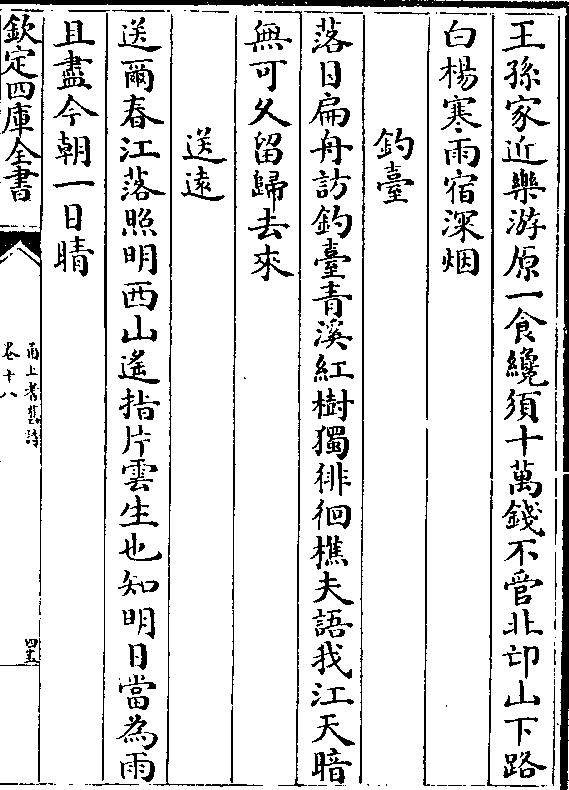 王孫家近樂游原一食纔須十萬錢不管北邙山下路
白楊寒雨宿深烟
釣臺
落日扁舟訪釣臺青溪紅樹獨徘徊樵夫語我江天暗
無可久留歸去來
送遠
送爾春江落照明西山遙指片雲生也知明日當為雨
且盡今朝一日晴
欽定四庫全書
甬上耆舊詩
卷十八
四十五